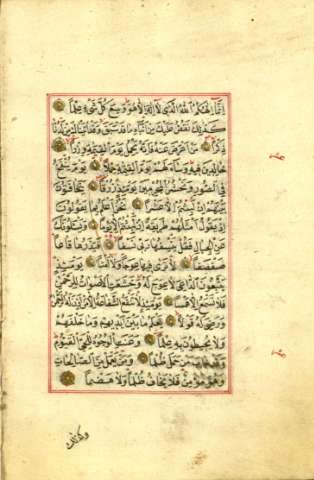 إِنَّمَا إِلٰهُكُمُ اللّٰهُ الَّذِي لَا إِلٰهَ إِلَّا هُوَ وَسِعَ كُلَّ شَيْءٍ عِلْمًا
كَذٰلِكَ نَقُصُّ عَلَيْكَ مِنْ أَنْبَاءِ مَا قَدْ سَبَقَ وَقَدْ آتَيْنَاكَ مِنْ لَدُنَّا
ذِكْرًا مَنْ أَعْرَضَ عَنْهُ فَإِنَّهُ يَحْمِلُ يَوْمَ الْقِيٰمَةِ وِزْرًا
خَالِدِينَ فِيهِ وَسَاءَ لَهُمْ يَوْمَ الْقِيٰمَةِ حِمْلًا يَوْمَ يُنْفَخُ
فِي الصُّورِ وَنَحْشُرُ الْمُجْرِمِينَ يَوْمَئِذٍ زُرْقًا يَتَخَافَتُونَ
بَيْنَهُمْ إِنْ لَبِثْتُمْ إِلَّا عَشْرًا نَحْنُ أَعْلَمُ بِمَا يَقُولُونَ
إِذْ يَقُولُ أَمْثَلُهُمْ طَرِيقَةً إِنْ لَبِثْتُمْ إِلَّا يَوْمًا وَيَسْئَلُونَكَ
عَنِ الْجِبَالِ فَقُلْ يَنْسِفُهَا رَبِّي نَسْفًا فَيَذَرُهَا قَاعًا
صَفْصَفًا لَا تَرٰى فِيهَا عِوَجًا وَلَا أَمْتًا يَوْمَئِذٍ
يَتَّبِعُونَ الدَّاعِيَ لَا عِوَجَ لَهُ وَخَشَعَتِ الْأَصْوَاتُ لِلرَّحْمٰنِ
فَلَا تَسْمَعُ إِلَّا هَمْسًا يَوْمَئِذٍ لَا تَنْفَعُ الشَّفَاعَةُ إِلَّا مَنْ أَذِنَ لَهُ الرَّحْمٰنُ
وَرَضِيَ لَهُ قَوْلًا يَعْلَمُ مَا بَيْنَ أَيْدِيهِمْ وَمَا خَلْفَهُمْ
وَلَا يُحِيطُونَ بِهِ عِلْمًا وَعَنَتِ الْوُجُوهُ لِلْحَيِّ الْقَيُّومِ
وَقَدْ خَابَ مَنْ حَمَلَ ظُلْمًا وَمَنْ يَعْمَلْ مِنَ الصَّالِحَاتِ
وَهُوَ مُؤْمِنٌ فَلَا يَخَافُ ظُلْمًا وَلَا هَضْمًا
وكذلك